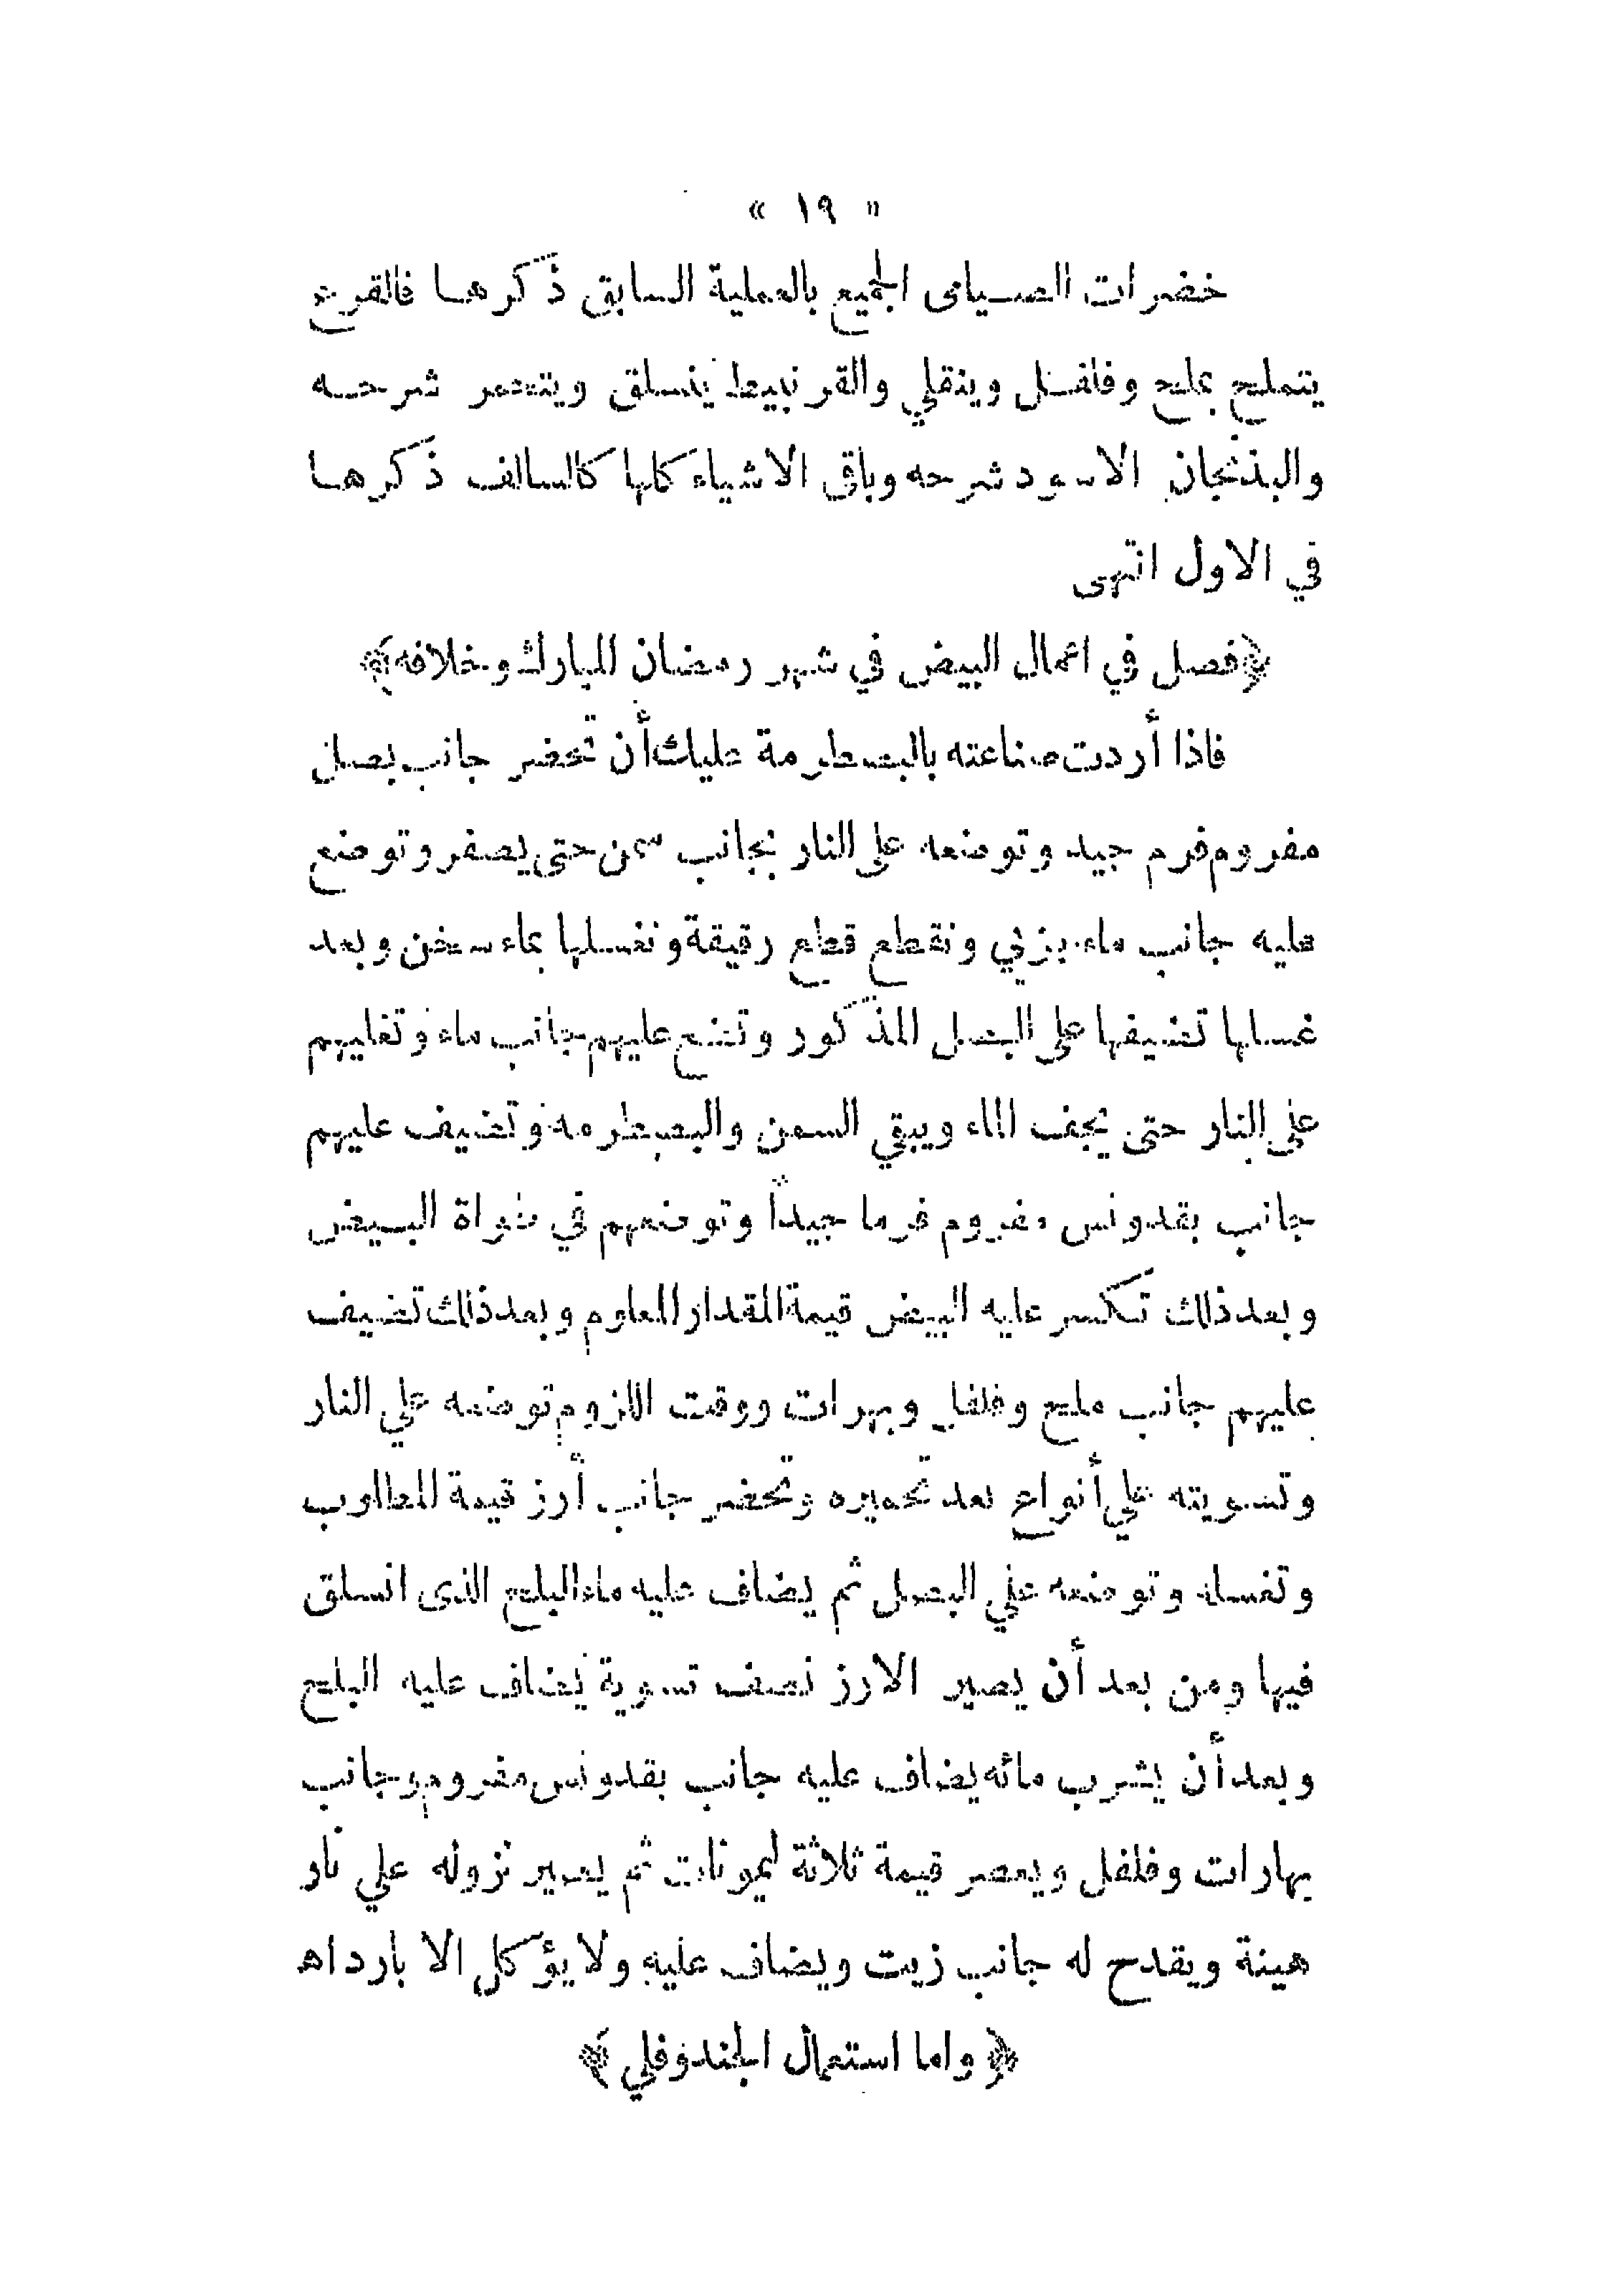 « ١٩ »
خضرات الصيامى الجميع بالعملية السابق ذكرها فالقرع
يتملح بملح وفلفل وينقلي والقرنبيط ينسلق ويتعمر شرحه
والبذنجان الاسود شرحه وباقى الاشياء كلها كالسالف ذكرها
في الاول انتهى
﴿فصل في اعمال البيض في شهر رمضان المبارك وخلافه﴾
فاذا أردت صناعته بالبصطرمة عليك أن تحضر جانب بصل
مفروم فرم جيد وتوضعه على النار بجانب سمن حتى يصفر وتوضع
عليه جانب ماء بزني ونقطع قطع رقيقة ونغسلها بماء سخن وبعد
غسلها تضيفها على البصل المذكور وتضع عليهم جانب ماء وتغليهم
على النار حتى يجف الماء ويبقي السمن والبصطرمه وتضيف عليهم
جانب بقدونس مفروم فرما جيداً وتوضعهم في طواة البيض
وبعد ذلك تكسر عليه البيض قيمة المقدار المعلوم وبعد ذلك تضيف
عليهم جانب ملح وفلفل وبهرات ووقت اللزوم توضعه علي النار
وتسويته علي أنواع بعد تحميره وتحضر جانب أرز قيمة المطلوب
وتغسله وتوضعه علي البصل ثم يضاف عليه ماء البلح الذى انسلق
فيها ومن بعد أن يصير الارز نصف تسوية يضاف عليه البلح
وبعد أن يشرب مائه يضاف عليه جانب بقدونس مفروم وجانب
بهارات وفلفل ويعصر قيمة ثلاثة ليمونات ثم يصير نزوله علي نار
هينة ويقدح له جانب زيت ويضاف عليه ولا يؤكل الا بارد اه
﴿ واما استعمال الجندوفلي ﴾